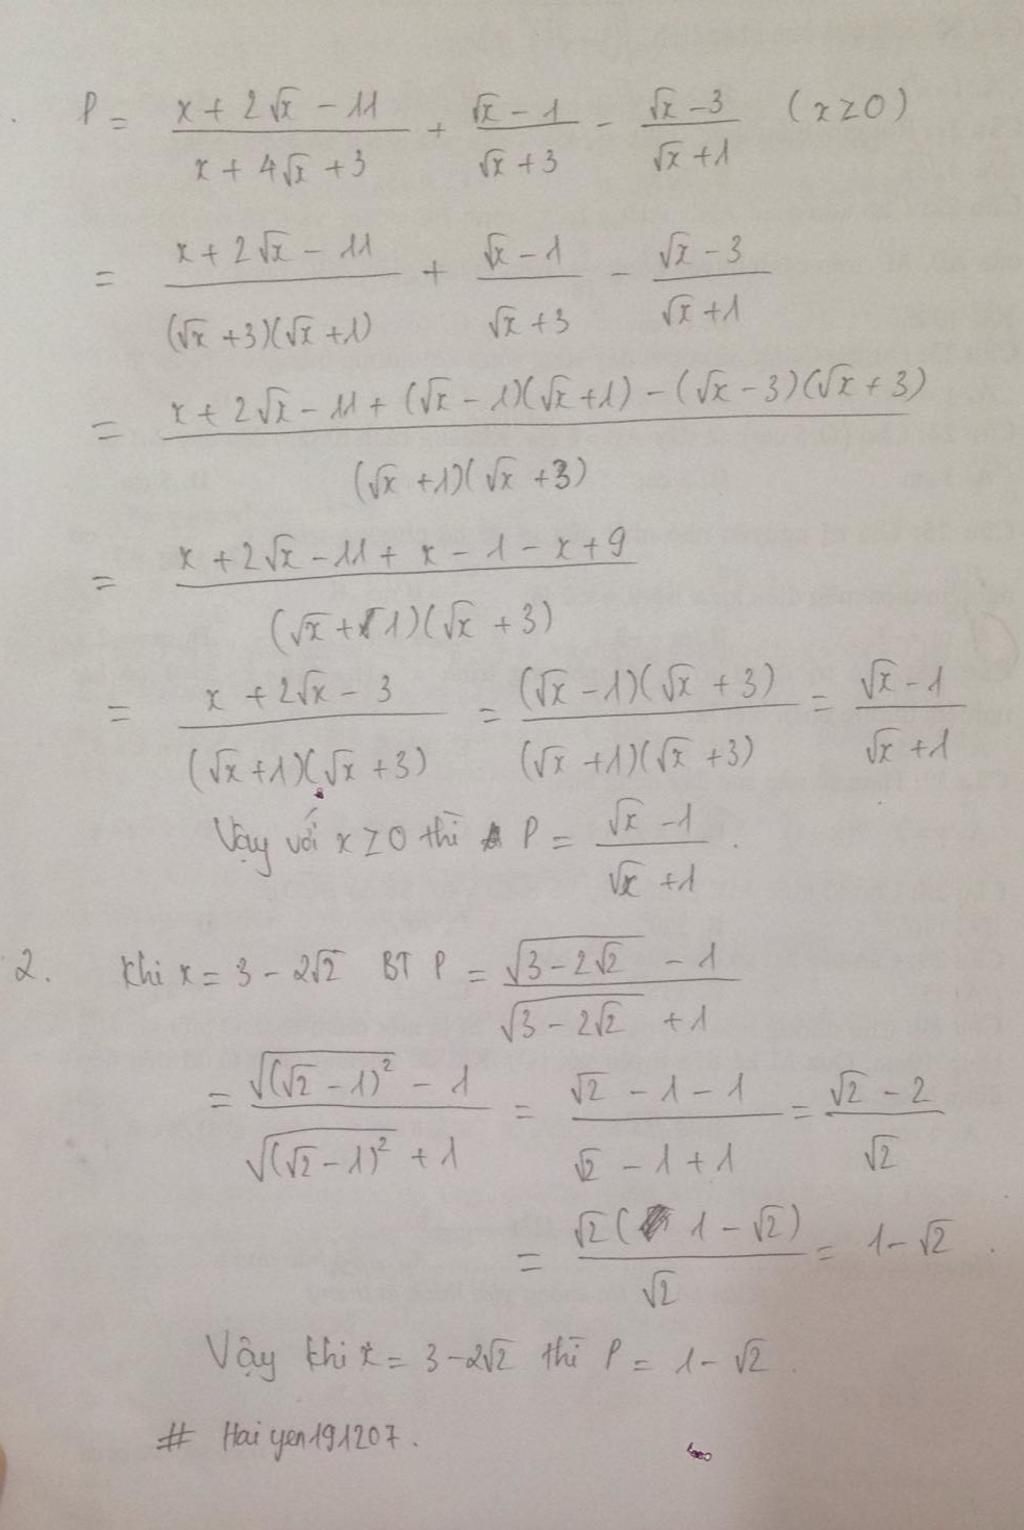 P = (x + 2√x - 11)/(x + 4√x + 3) + (√x - 1)/(√x + 3) - (√x - 3)/(√x + 1) (x ≥ 0)
= (x + 2√x - 11)/((√x + 3)(√x + 1)) + (√x - 1)/(√x + 3) - (√x - 3)/(√x + 1)
= (x + 2√x - 11 + (√x - 1)(√x + 1) - (√x - 3)(√x + 3))/((√x + 1)(√x + 3))
= (x + 2√x - 11 + x - 1 - x + 9)/((√x + 1)(√x + 3))
= (x + 2√x - 3)/((√x + 1)(√x + 3)) = ((√x - 1)(√x + 3))/((√x + 1)(√x + 3)) = (√x - 1)/(√x + 1)
Vậy với x ≥ 0 thì P = (√x - 1)/(√x + 1).
2. Khi x = 3 - 2√2 BT P = (√(3 - 2√2) - 1)/(√(3 - 2√2) + 1)
= (√((√2 - 1)²) - 1)/(√((√2 - 1)²) + 1) = (√2 - 1 - 1)/(√2 - 1 + 1) = (√2 - 2)/√2
= (√2(1 - √2))/√2 = 1 - √2.
Vậy khi x = 3 - 2√2 thì P = 1 - √2.
# Hai yen191207.